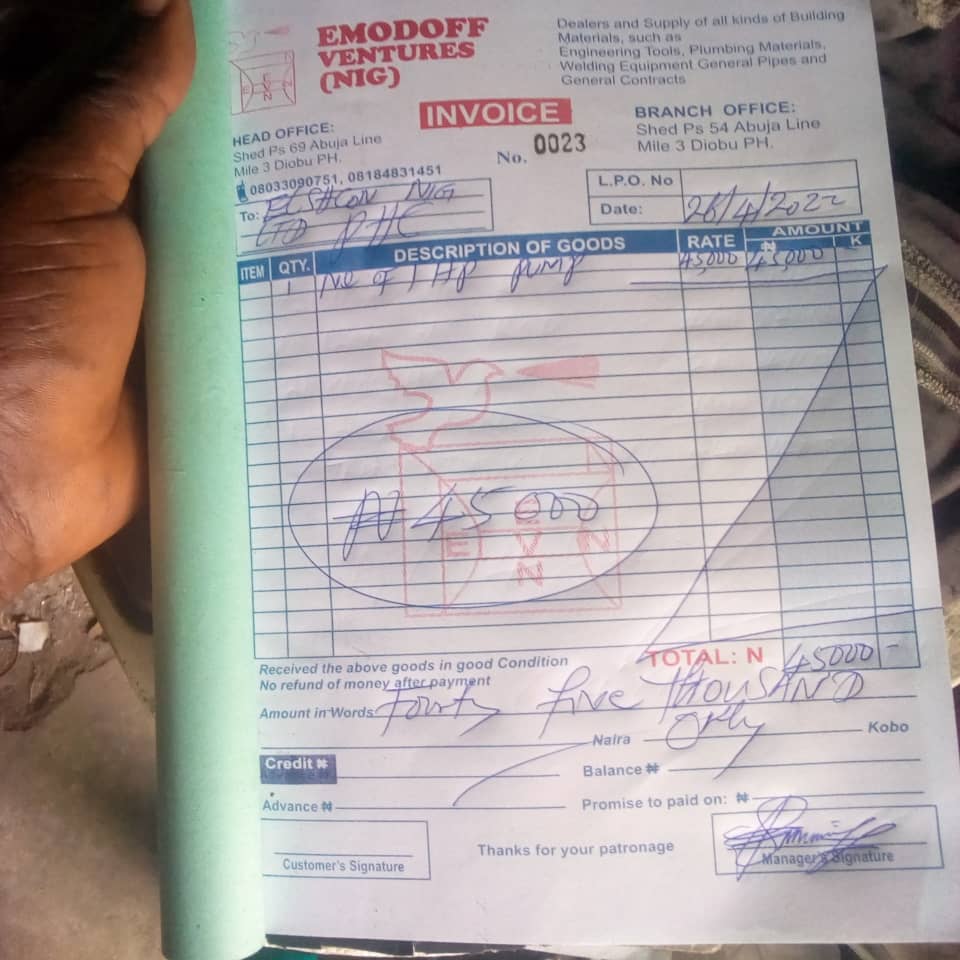 EMODOFF
VENTURES
(NIG)
Dealers and Supply of all kinds of Building
Materials, such as
Engineering Tools, Plumbing Materials,
Welding Equipment General Pipes and
General Contracts
INVOICE
HEAD OFFICE:
Shed Ps 69 Abuja Line
Mile 3 Diobu PH.
08033090751, 08184831451
No. 0023
BRANCH OFFICE:
Shed Ps 54 Abuja Line
Mile 3 Diobu PH.
To: NIG
LTD PHC
L.P.O. No
Date: 26/4/2022
ITEM QTY. DESCRIPTION OF GOODS RATE AMOUNT
₦ K
1 No of 1 HP pump 45000 45,000
₦ 45000
E V N
N
Received the above goods in good Condition
No refund of money after payment
TOTAL: N 45000-
Amount in Words: Fourty Five THOUSAND
Naira Only Kobo
Credit ₦
Balance ₦
Advance ₦
Promise to paid on: ₦
Customer's Signature
Thanks for your patronage
Manager's Signature